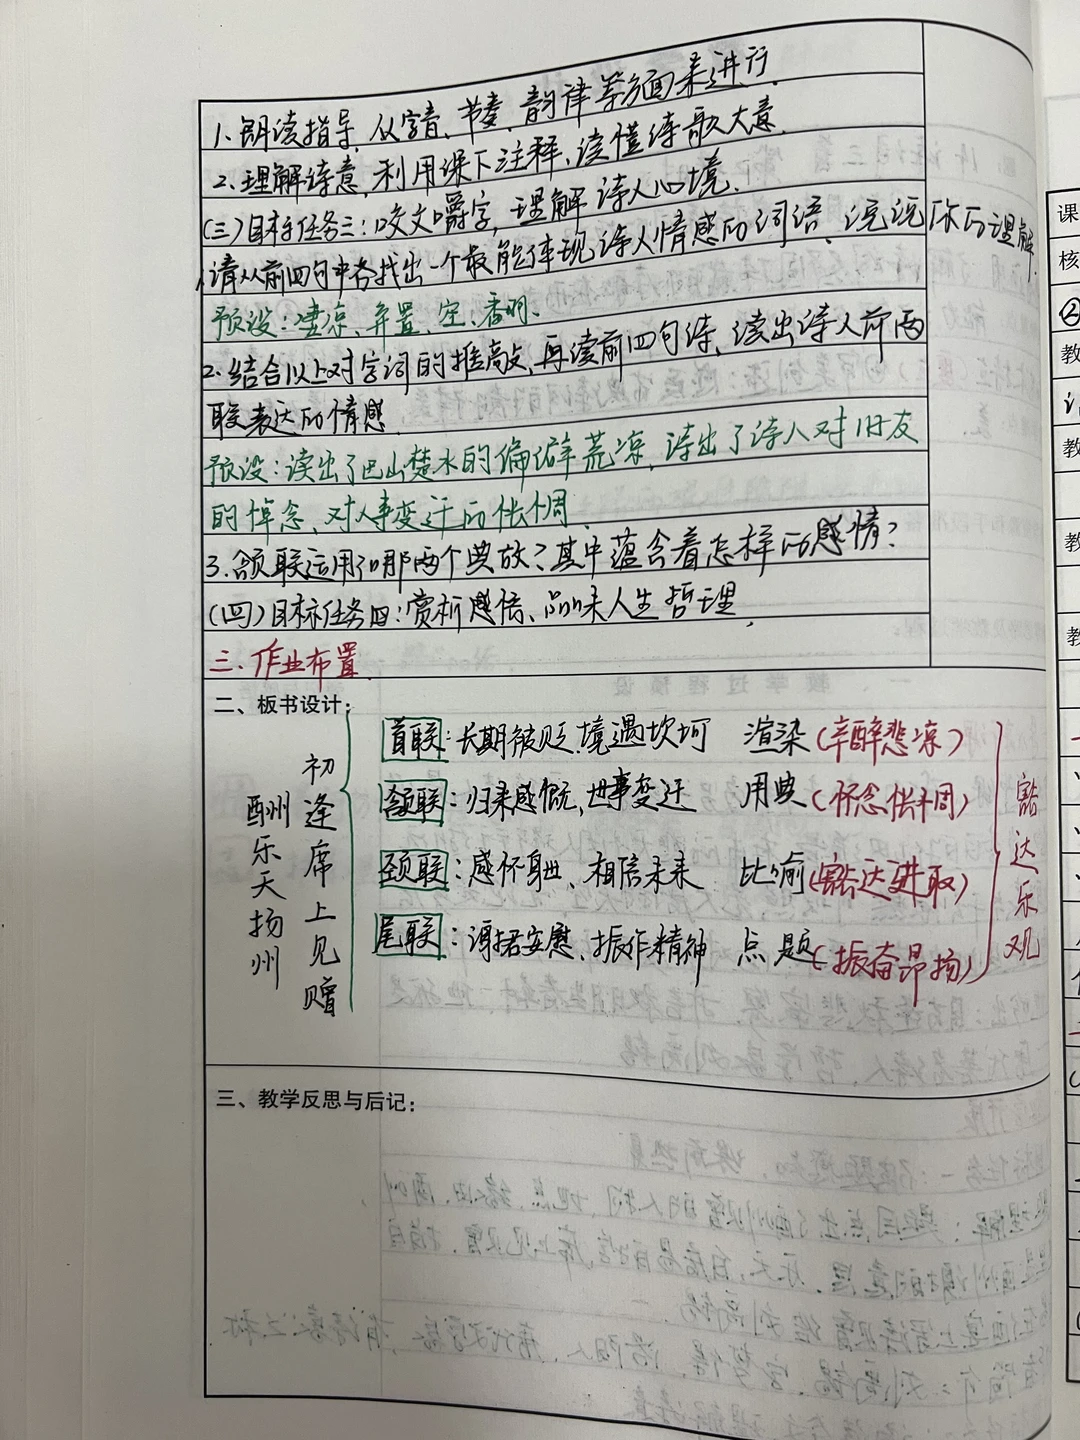 1.朗读指导,从字音、节奏、韵律等方面来进行.
2.理解诗意,利用课下注释,读懂诗歌大意.
(三)目标任务三:咬文嚼字,理解诗人心境.
1.请从前四句中各找出一个最能体现诗人情感的词语,说说你的理解.
预设:凄凉、弃置、空、香明.
2.结合以上对字词的推敲,再读前四句诗,读出诗人前两
联表达的情感
预设:读出了巴山楚水的偏僻荒凉,读出了诗人对旧友
的悼念、对人事变迁的怅惘.
3.颔联运用了哪两个典故?其中蕴含着怎样的感情?
(四)目标任务四:赏析感悟、品味人生哲理.
三.作业布置.
二、板书设计:
酬乐天扬州
初逢席上见赠
首联:长期被贬,境遇坎坷 渲染(辛酸悲凉)
颔联:归来感慨,世事变迁 用典(怀念怅惘)
颈联:感怀身世、相信未来 比喻(豁达进取)
尾联:谢君安慰、振作精神 点题(振奋昂扬)
豁达乐观
三、教学反思与后记:
课
核
②
教
教
教
教